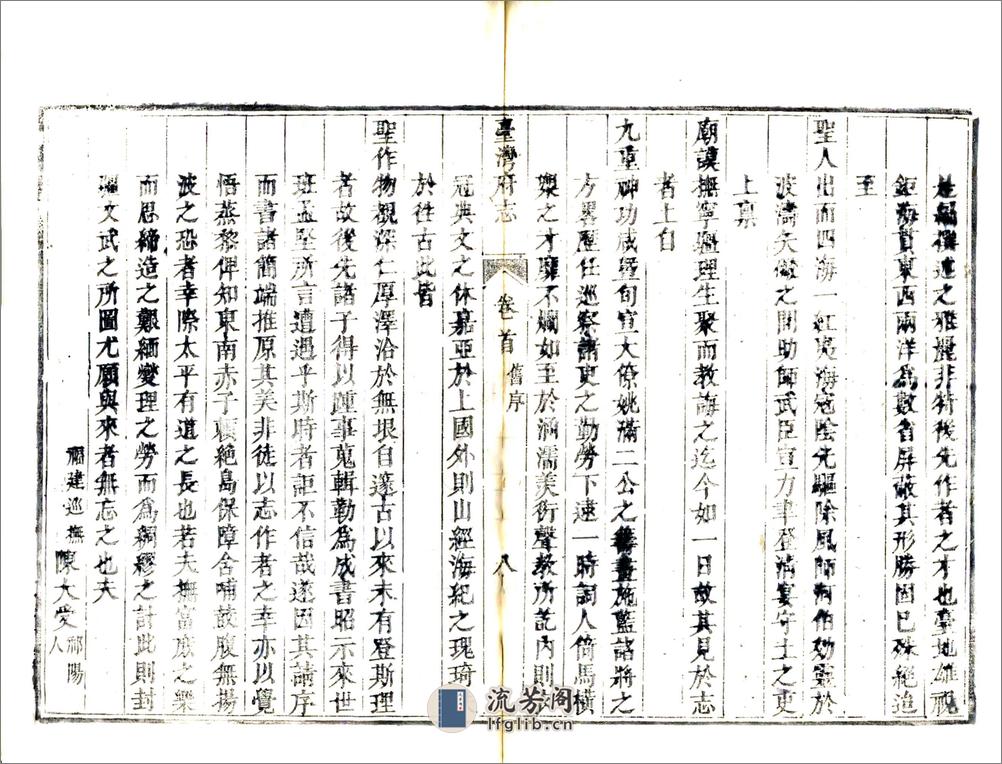 是編撰述之雅麗非特後先作者之才也臺地雄視
鉅海貫東西兩洋為數省屏蔽其形勝固已殊絕迨
至
聖人出而四海一紅夷海寇陰先驅除風師雨伯効靈於
波濤天儆之間助師武臣宣力聿登淸宴守土之吏
上稟
廟謨撫寧疆理生聚而教誨之迄今如一日故其見於志
者上自
九重神功咸疊旬宣大僚姚滿二公之籌畫施藍諸將之
方畧歷任巡察諸吏之勤勞下逮一時詞人倚馬橫
槊之才靡不爛如至於涵濡美衍聲教所訖內則
冠典文之休嘉亞於上國外則山經海紀之瑰琦
於往古此皆
聖作物覩深仁厚澤洽於無垠自邃古以來未有登斯理
者故後先諸子得以踵事蒐輯勒為成書昭示來世
班孟堅所言遭遇乎斯時者詎不信哉遂因其請序
而書諸簡端推原其美非徒以志作者之幸亦以覺
悟蒸黎俾知東南赤子賴絶島保障含哺鼓腹無揚
波之恐者幸際太平有道之長也若夫撫富庶之樂
而思締造之艱緬燮理之勞而為綢繆之計此則封
疆文武之所圖尤願與來者無忘之也夫
福建巡撫陳大受祁陽人
臺灣府志
卷首
舊序
八
流芳阁
lfglib.cn